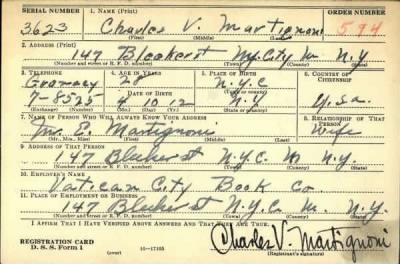 SERIAL NUMBER 1. NAME (Print) ORDER NUMBER
3623 Charles V. Martignoni 594
(First) (Middle) (Last)
2. ADDRESS (Print)
147 Bleeker st N.Y. City N.Y.
(Number and street or R. F. D. number) (Town) (County) (State)
3. TELEPHONE 4. AGE IN YEARS 5. PLACE OF BIRTH 6. COUNTRY OF CITIZENSHIP
Gramacy 28 N.Y.C.
Exchange DATE OF BIRTH (Town or county)
7-8525 4 10 12 N.Y U.S.a.
(Number) (Mo.) (Day) (Yr.) (State or country)
7. NAME OF PERSON WHO WILL ALWAYS KNOW YOUR ADDRESS 8. RELATIONSHIP OF THAT PERSON
E. Martignoni Wife
(Mr., Mrs., Miss) (First) (Middle) (Last)
9. ADDRESS OF THAT PERSON
147 Bleeker st N.Y.C. M N.Y.
(Number and street or R. F. D. number) (Town) (County) (State)
10. EMPLOYER'S NAME
Vatican City Book Co
11. PLACE OF EMPLOYMENT OR BUSINESS
147 Bleeker st N.Y.C. M. N.Y.
(Number and street or R. F. D. number) (Town) (County) (State)
I AFFIRM THAT I HAVE VERIFIED ABOVE ANSWERS AND THAT THEY ARE TRUE.
REGISTRATION CARD
D. S. S. Form 1 (over) 16—17105 Charles V. Martignoni
(Registrant's signature)